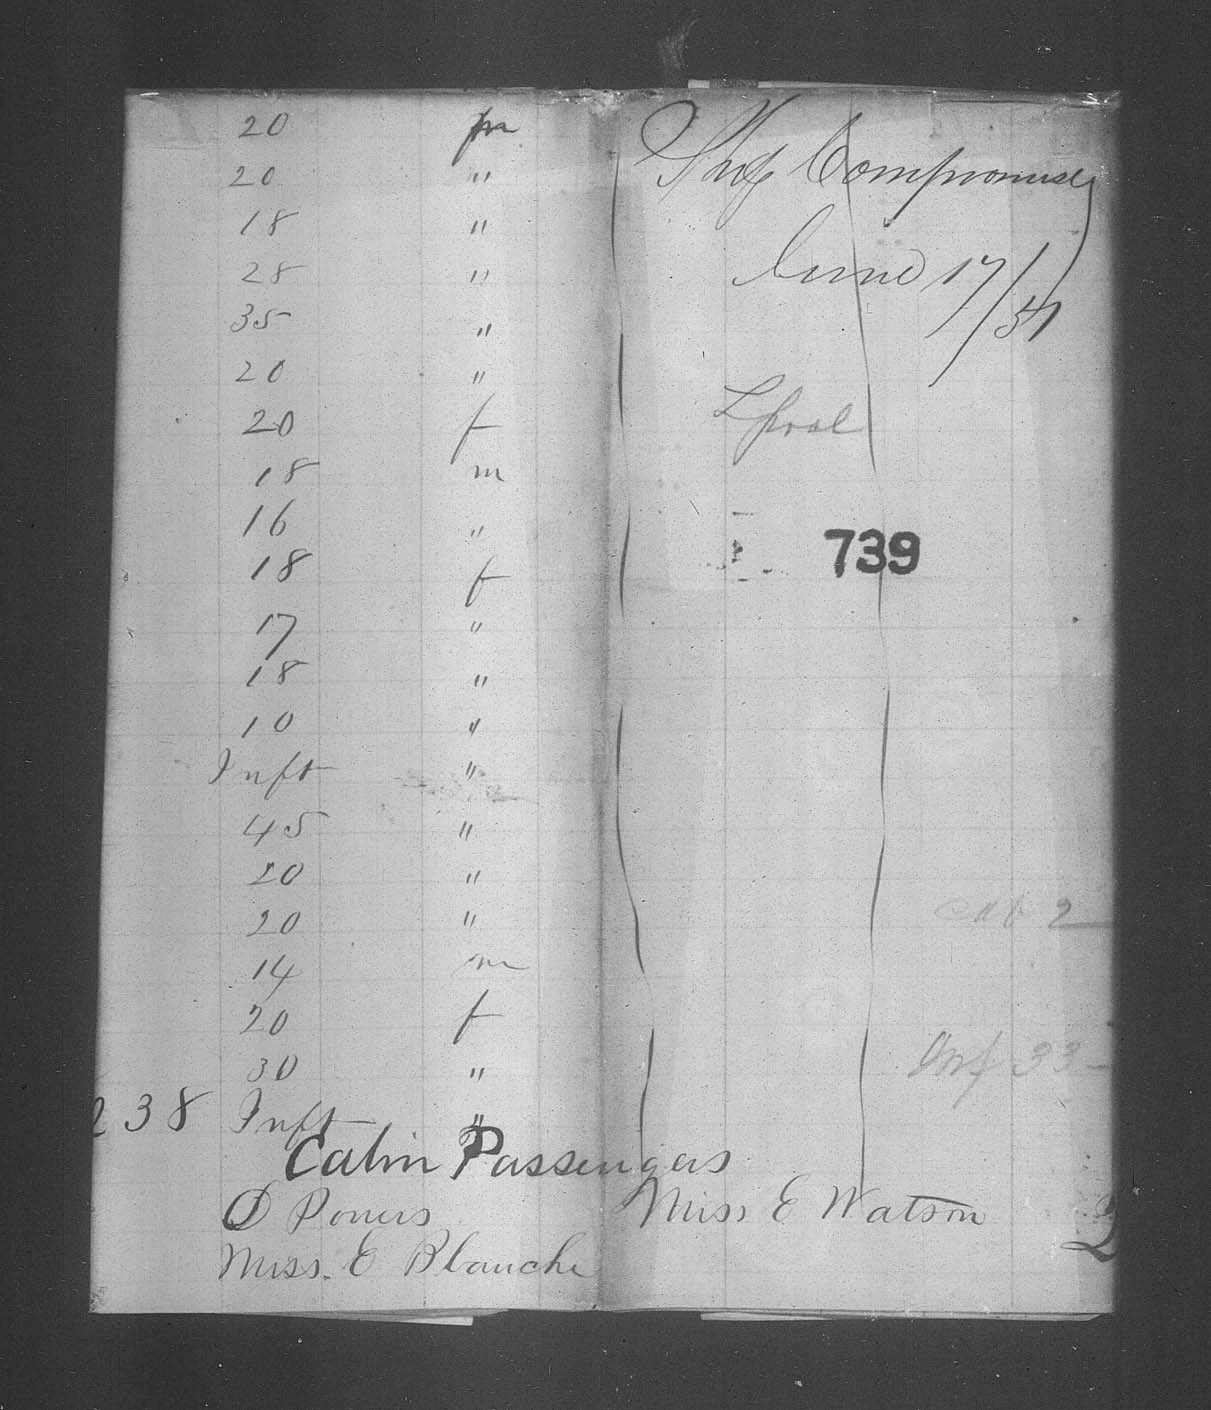 20 m
20 "
18 "
28 "
35 "
20 "
20 f
18 m
16 "
18 f
17 "
18 "
10 "
Inft "
45 "
20 "
20 "
14 m
20 f
30 "
238 Inft "
Cabin Passengers
D Powers Miss E Watson
Miss. E Blanche
Ship Compromise
June 17/51
Lpool
739
Cab 2
Inf 33